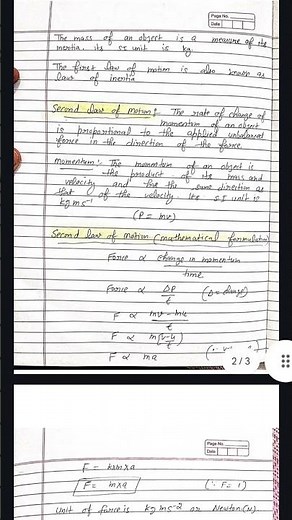 Page No.
Date
The mass of an object is a measure of its
inertia. its SI unit is kg.
The first law of motion is also known as
law of inertia
Second law of motion:- The rate of change of
momentum of an object
is proportional to the applied unbalanced
force in the direction of the force.
momentum:- The momentum of an object is
the product of its mass and
velocity and has the same direction as
that of the velocity its SI unit is
kg ms⁻¹
(P = mv)
Second law of motion (mathematical formulation)
Force ∝ change in momentum
time
Force ∝ ΔP/t (Δ = change)
F ∝ mv - mu/t
F ∝ m(v-u)/t
F ∝ ma
2/3
Page No.
Date
F = k×m×a
F = m×a
Unit of force is kg ms⁻² or Newton (N)